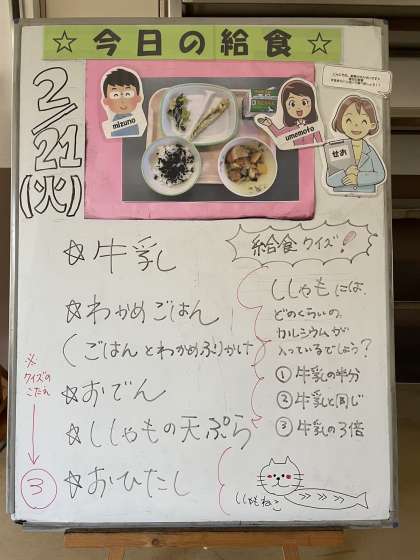 ☆今日の給食☆
2/21
(火)
mizuno
umemoto
せお
☆牛乳
☆わかめごはん
(ごはんとわかめふりかけ
☆おでん
☆ししゃもの天ぷら
☆おひたし
給食クイズ!
ししゃもには、
どのくらいの
カルシウムが
入っているでしょう?
①牛乳の半分
②牛乳と同じ
③牛乳の3倍
ししゃもねこ
※
クイズの
こたえ
③